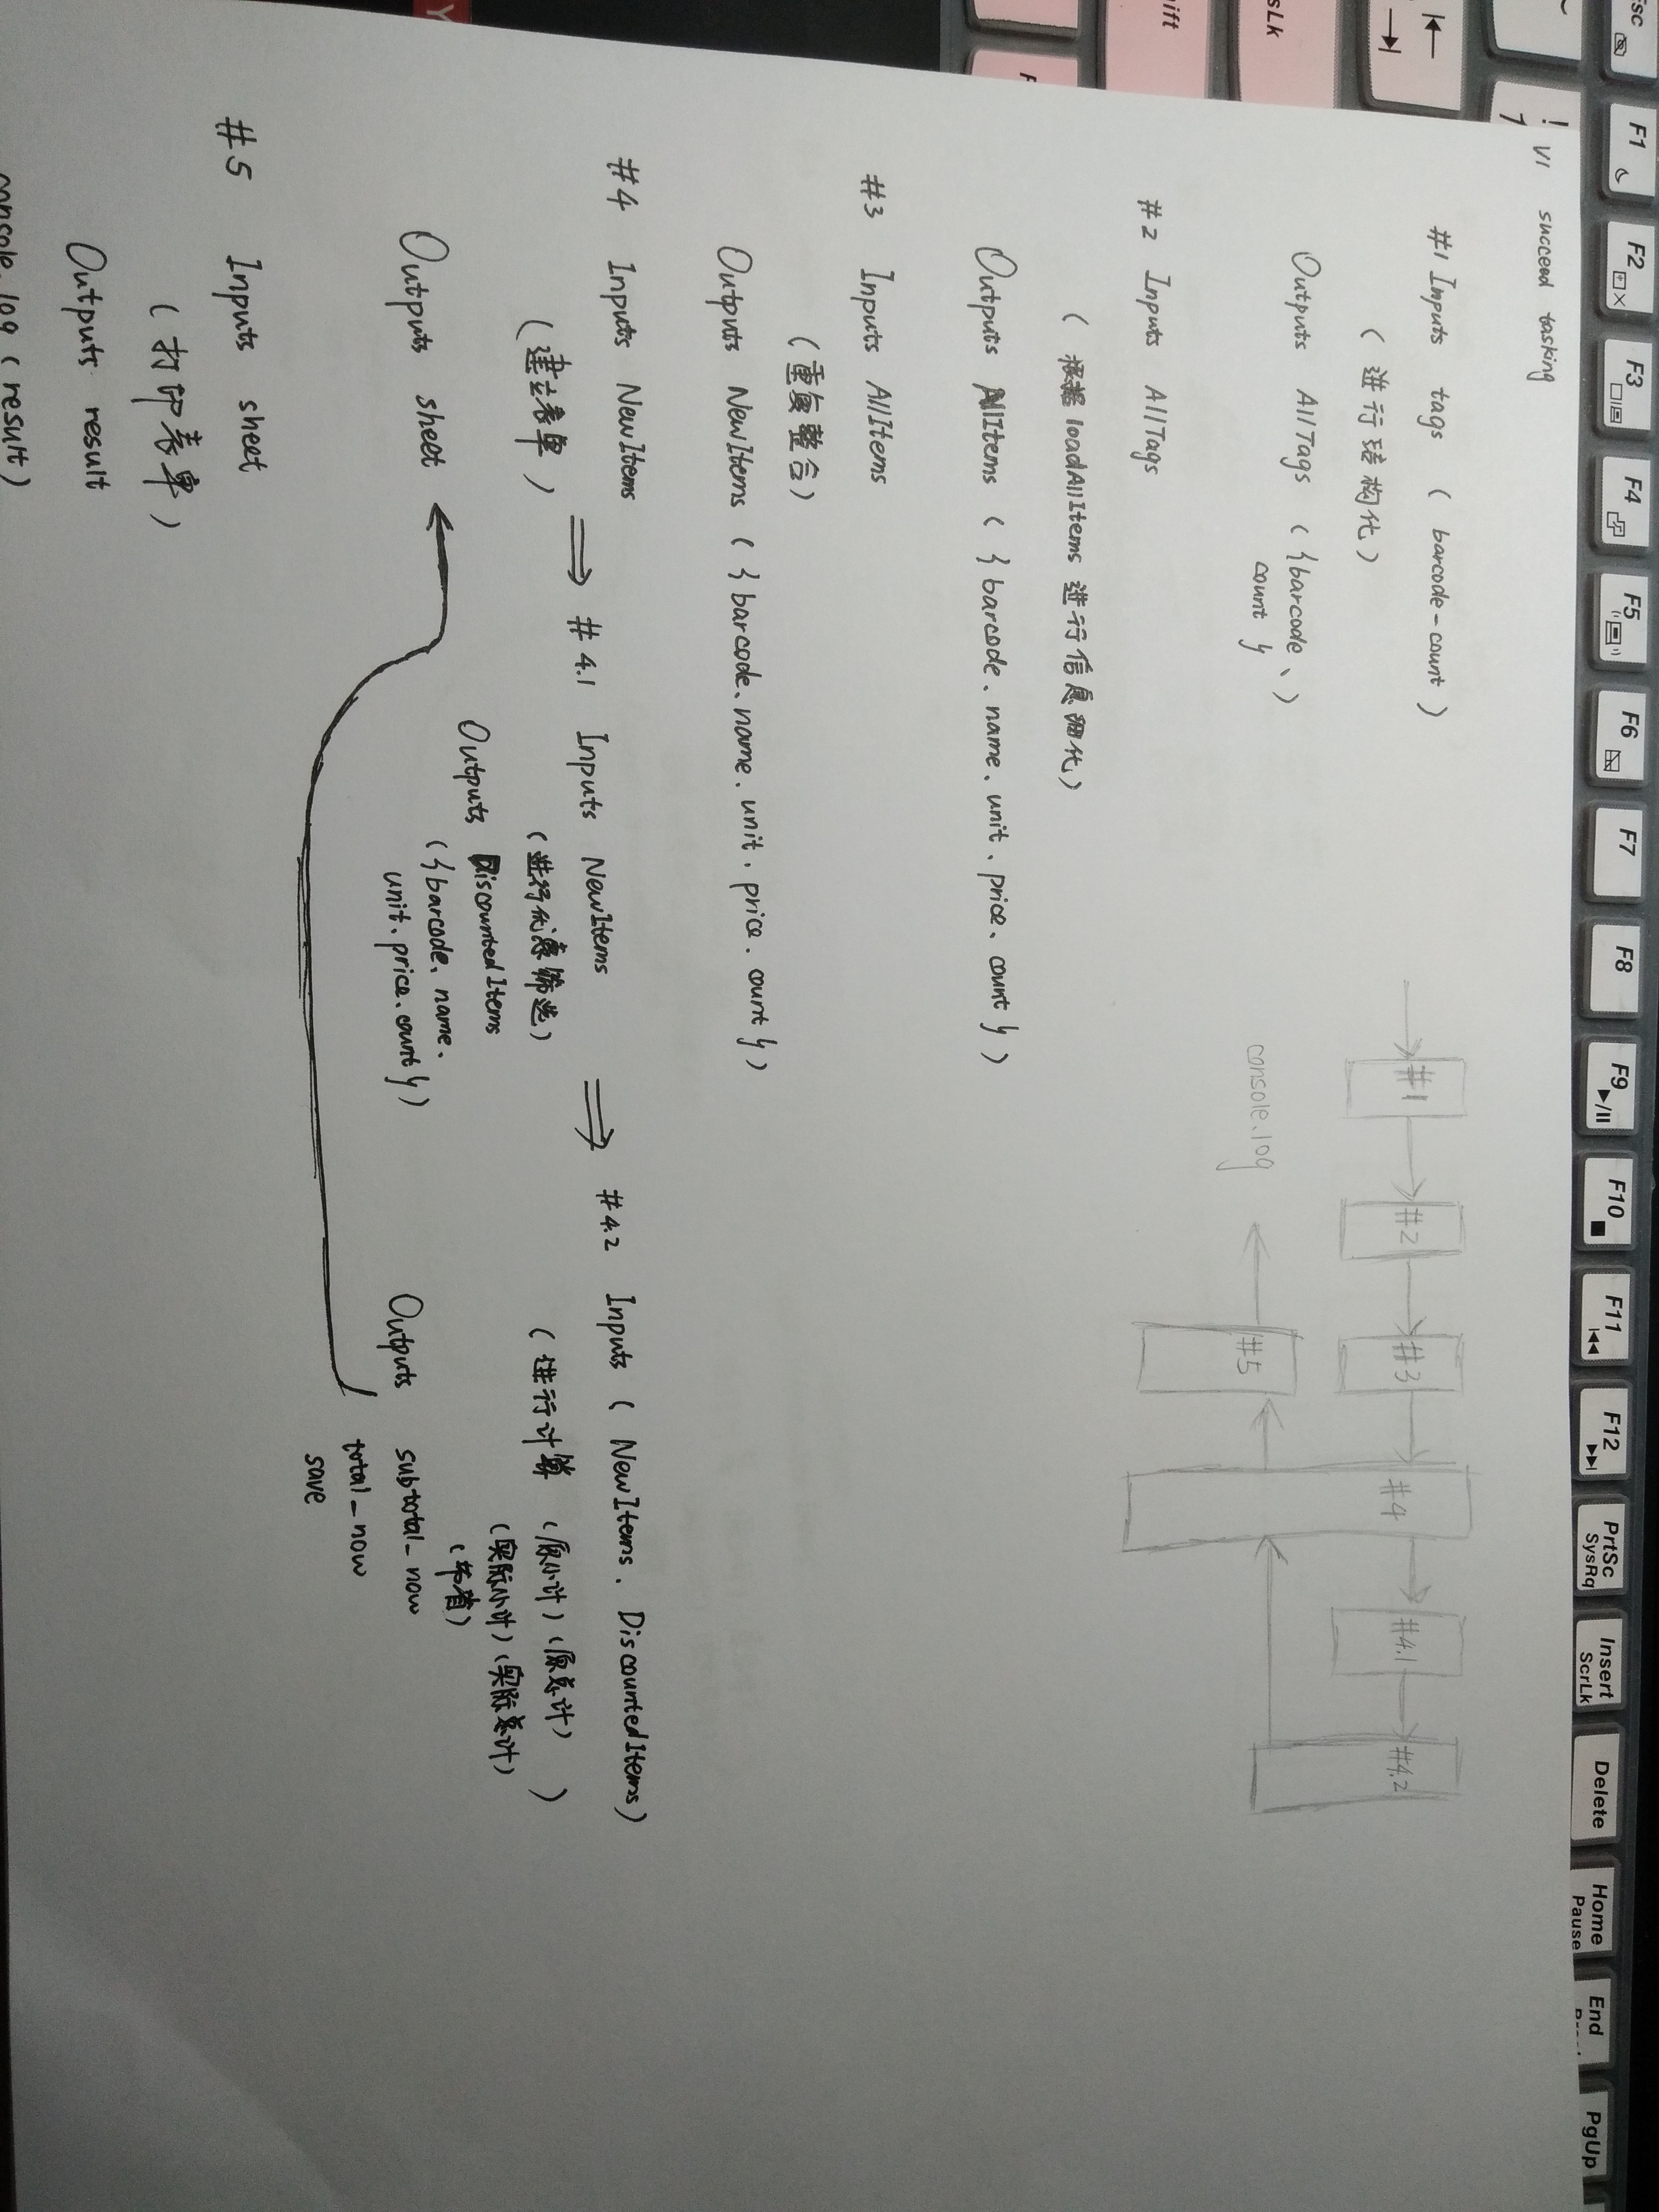 Esc
F1
F2
F3
F4
F5
F6
F7
F8
F9
F10
F11
F12
PrtSc
SysRq
Insert
ScrLk
Delete
Home
Pause
End
PgUp
!
1
sLk
ift
F
Y
V1 succeed tasking
#1 Inputs tags ( barcode-count )
( 进行结构化 )
Outputs AllTags ( {barcode、 )
count }
#2 Inputs AllTags
( 根据 loadAllItems 进行信息细化 )
Outputs AllItems ( { barcode. name. unit. price. count } )
#3 Inputs AllItems
( 重复整合 )
Outputs NewItems ( { barcode. name. unit. price. count } )
#4 Inputs NewItems
( 建立表单 )
Outputs sheet
#4.1 Inputs NewItems
( 进行优惠筛选 )
Outputs DiscountedItems
( { barcode. name.
unit. price. count } )
#4.2 Inputs ( NewItems. DiscountedItems )
( 进行计算 (原小计) (原总计) )
(实际小计) (实际总计)
(节省)
Outputs subtotal_now
total_now
save
#5 Inputs sheet
( 打印表单 )
Outputs result
console.log ( result )
#1
#2
#3
#4
#4.1
#4.2
#5
console.log